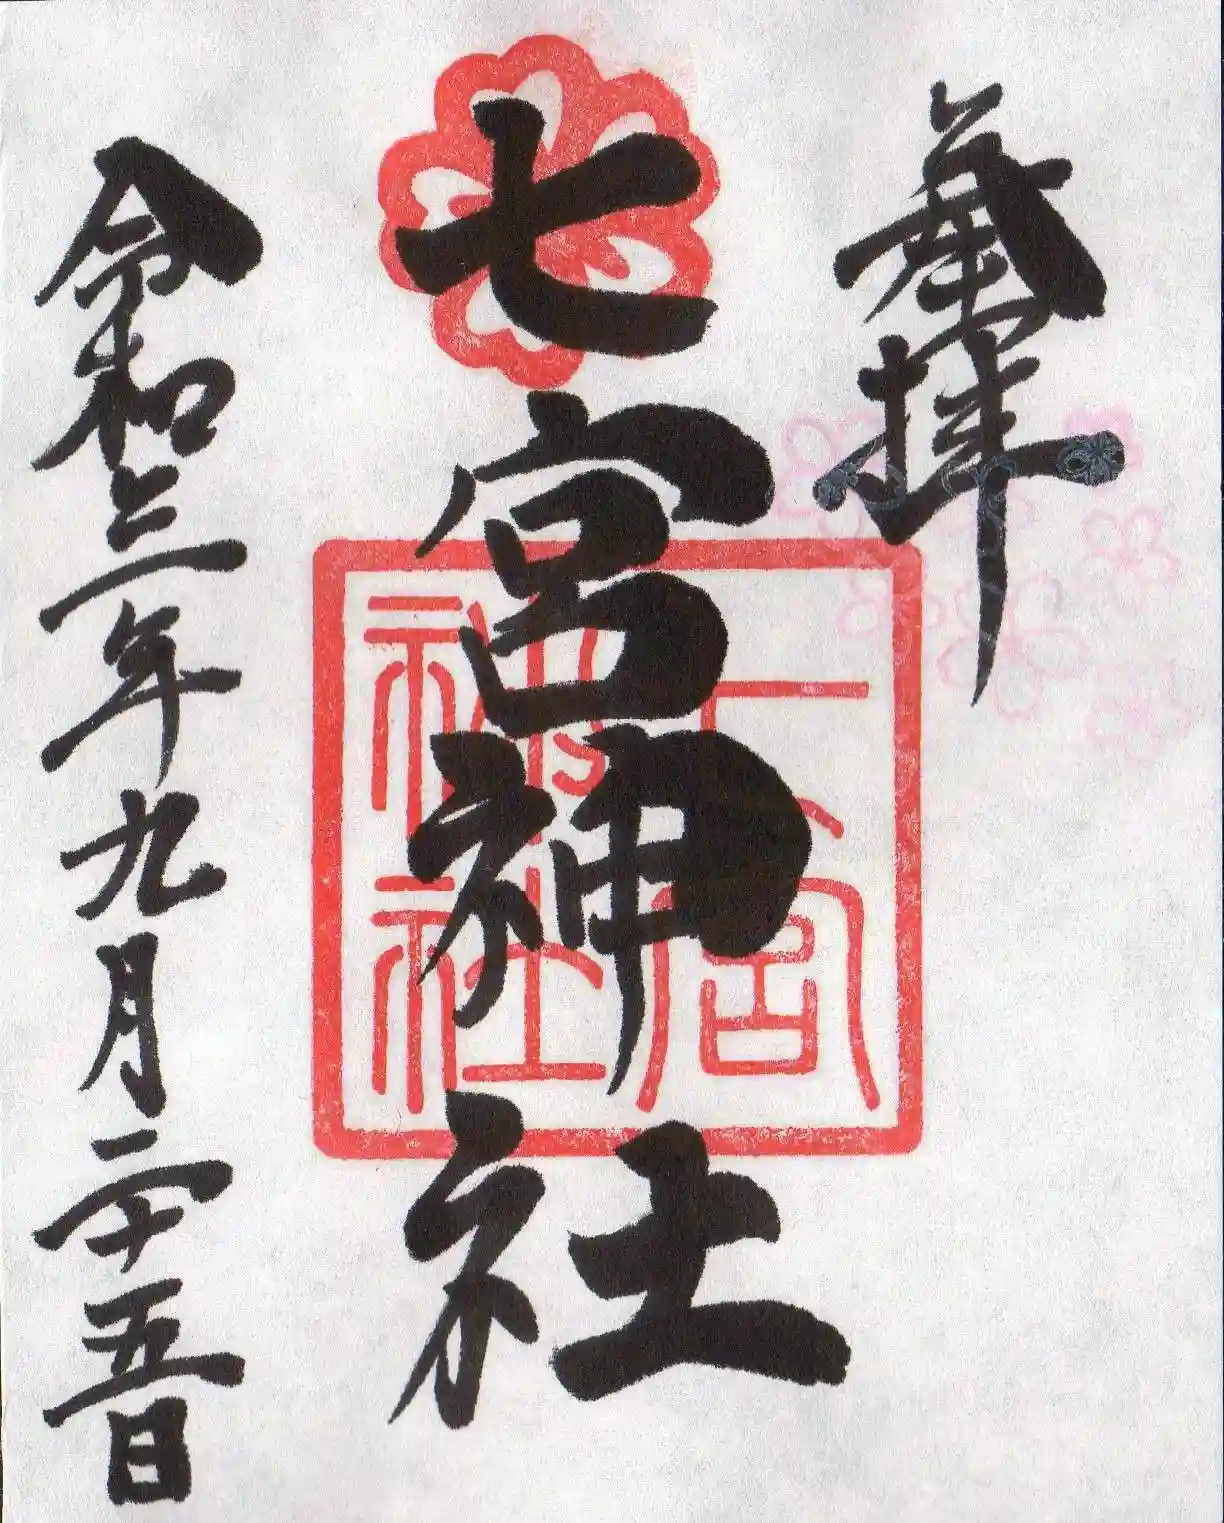 奉拝
七宮神社
七宮
神社
令和三年九月二十五日